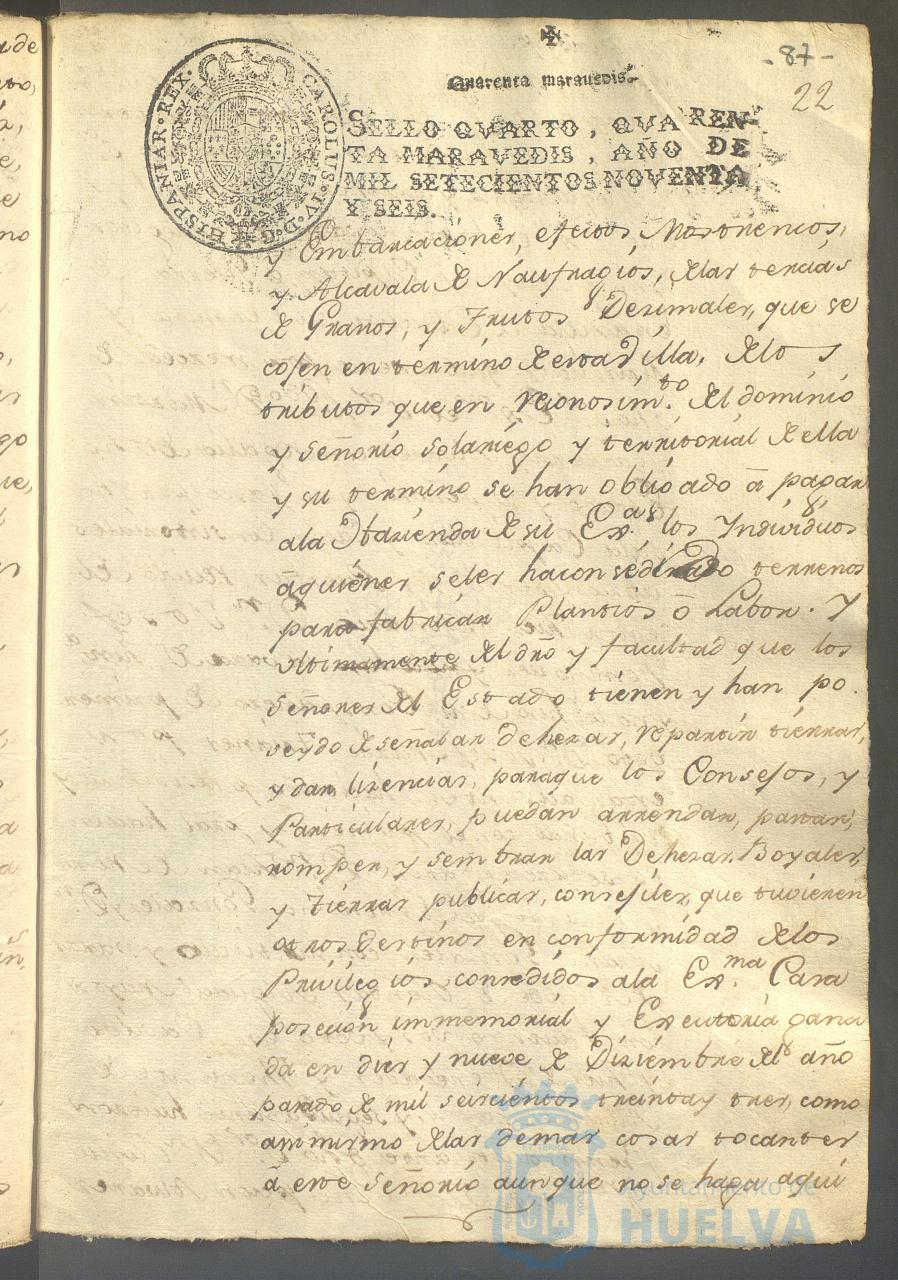 -87-
22
Quarenta maravedis.
SELLO QVARTO, QVAREN-
TA MARAVEDIS, AÑO DE
MIL SETECIENTOS NOVENTA
Y SEIS.
CAROLUS·IV·D·G·HISPANIAR·REX·
y Embarcaciones, efectos Mostrencos,
y Alcavala de Naufragios, delas tercias
de Granos, y Frutos Dezimales, que se
cojen en termino de esta Villa, delos
tributos que en reconosim.to del dominio
y señorio solariego y territorial de ella
y su termino se han obligado â pagar
ala Hazienda de su Ex.a los Yndividuos
âquienes seles ha consedido terrenos
para fabricar Plantios ô Labor. Y
ultimamente del dro y facultad que los
señores del Estado tienen y han po-
seydo de señalar dehezas, repartir tierras,
y dar lizencias, paraque los Consejos, y
Particulares, puedan arrendar, pastar,
romper, y sembrar las Dehezas Boyales,
y Tierras publicas, consejiles, que tuvieren
otros destinos en conformidad delos
Privilegios, consedidos ala Ex.ma Casa
poseción immemorial y Executoria gana
da en diez y nueve de Diziembre del año
pasado de mil seiscientos treinta y tres, como
asimismo delas demas cosas tocantes
â este señorio aunque no se haga aqui
Ayuntamiento de
HUELVA